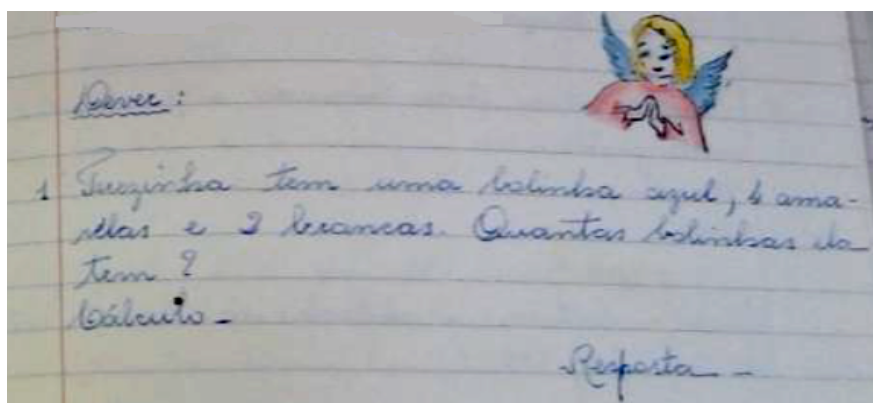 Dever:
1 Terezinha tem uma bolinha azul, 4 ama-
relas e 2 brancas. Quantas bolinhas ela
tem?
Cálculo -
Resposta -